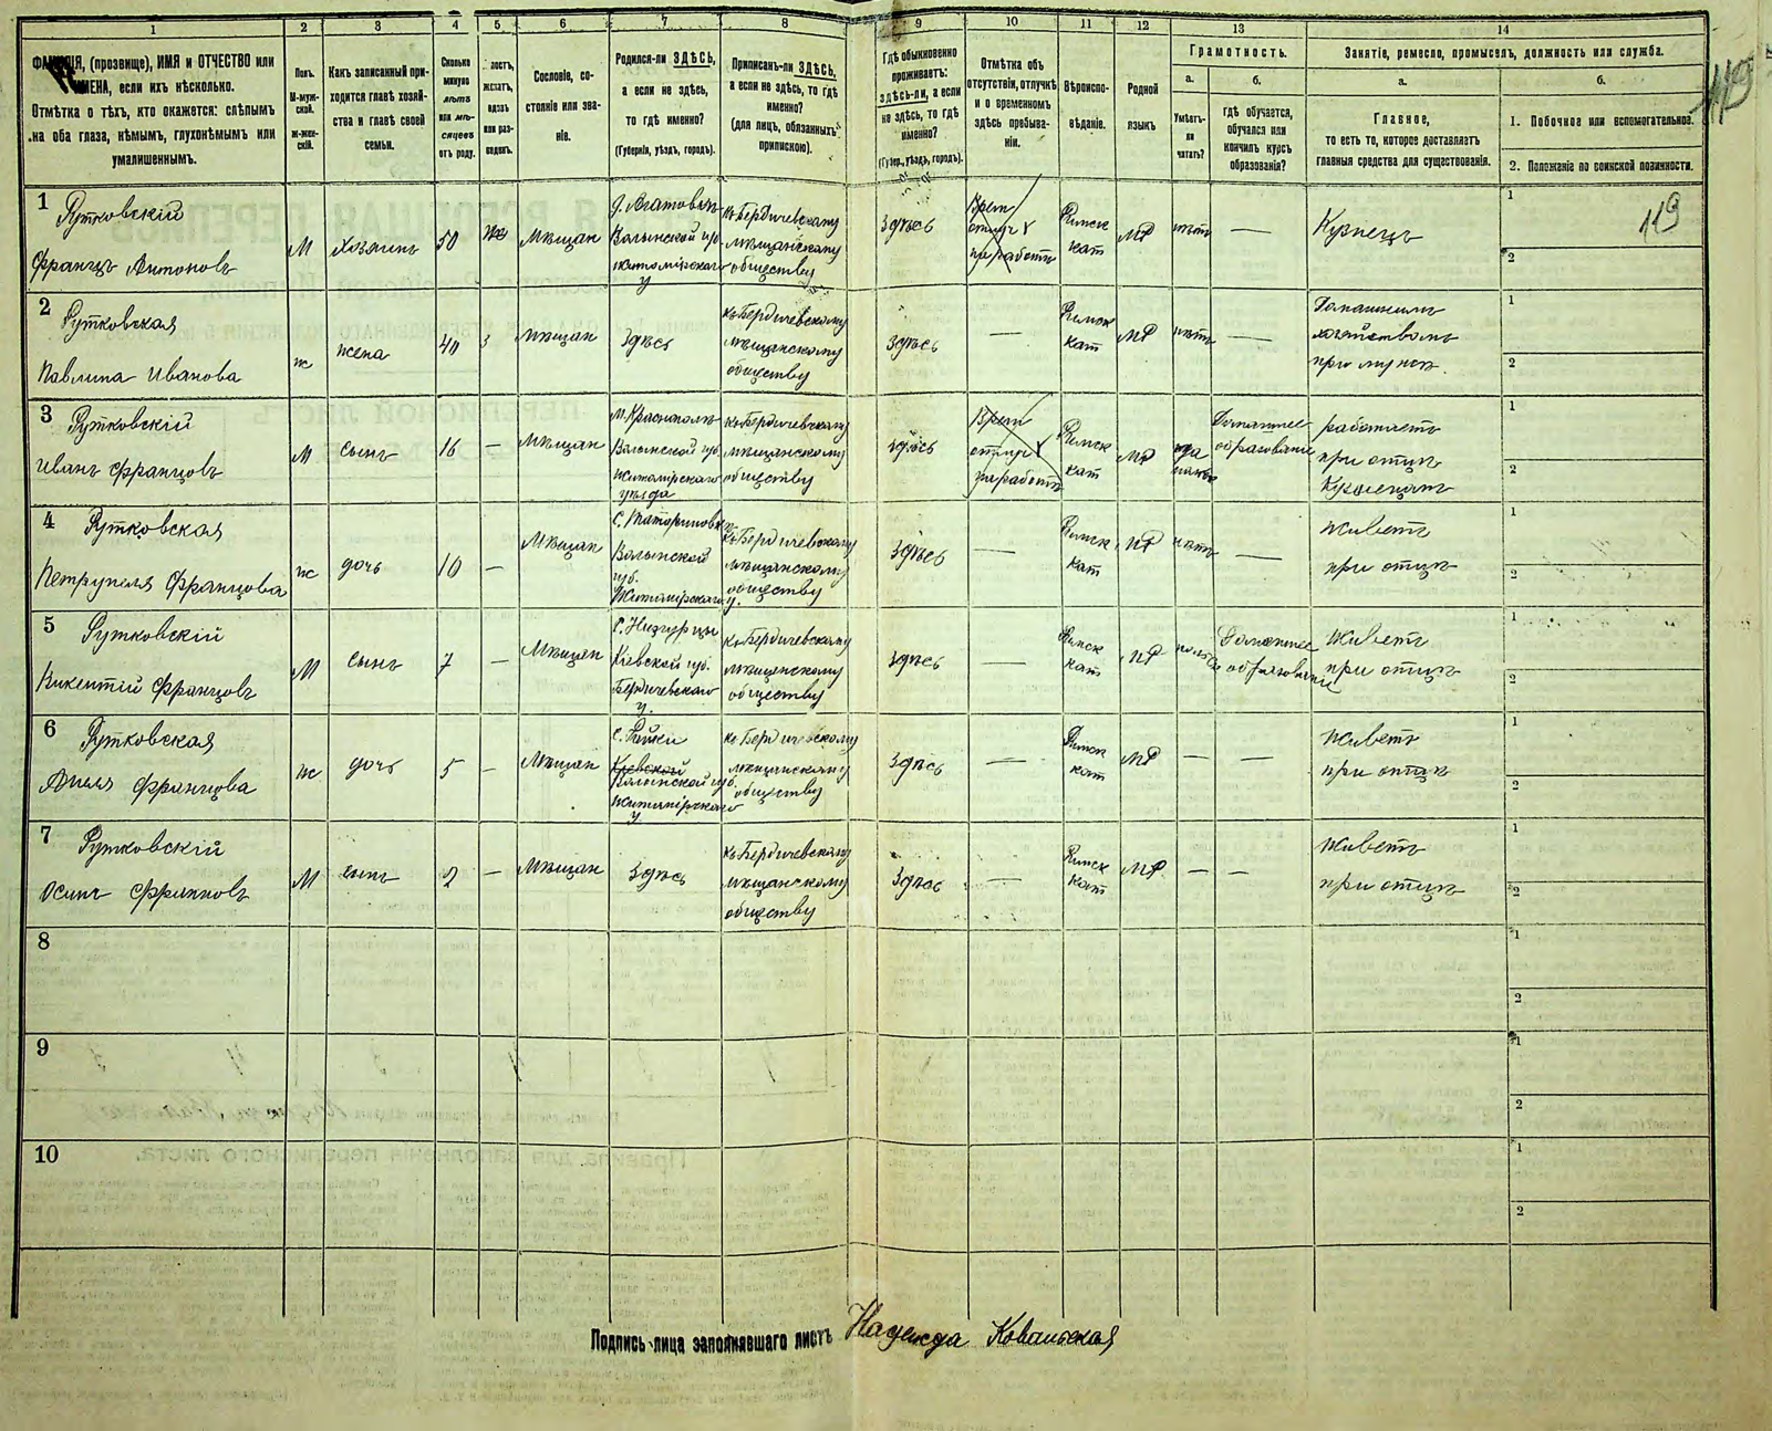 1
2
3
4
5
6
7
8
9
10
11
12
13
14
ФАМИЛІЯ, (прозвище), ИМЯ и ОТЧЕСТВО или
ИМЕНА, если ихъ нѣсколько.
Отмѣтка о тѣхъ, кто окажется: слѣпымъ
на оба глаза, нѣмымъ, глухонѣмымъ или
умалишеннымъ.
Полъ.
М-муж-
ской.
ж-жен-
скій.
Какъ записанный при-
ходится главѣ хозяй-
ства и главѣ своей
семьи.
Сколько
минуло
лѣтъ
или мѣ-
сяцевъ
отъ роду.
лостъ,
женатъ,
вдовъ
или раз-
веденъ.
Сословіе, со-
стояніе или зва-
ніе.
Родился-ли ЗДѢСЬ,
а если не здѣсь,
то гдѣ именно?
(Губернія, уѣздъ, городъ).
Приписанъ-ли ЗДѢСЬ,
а если не здѣсь, то гдѣ
именно?
(для лицъ, обязанныхъ
припискою).
Гдѣ обыкновенно
проживаетъ:
здѣсь-ли, а если
не здѣсь, то гдѣ
именно?
(Губер., уѣздъ, городъ).
Отмѣтка объ
отсутствіи, отлучкѣ
и о временномъ
здѣсь пребыва-
ніи.
Вѣроиспо-
вѣданіе.
Родной
языкъ
Грамотность.
а.
Умѣетъ-
ли
читать?
б.
гдѣ обучается,
обучался или
кончилъ курсъ
образованія?
Занятіе, ремесло, промыселъ, должность или служба.
а.
Главное,
то есть то, которое доставляетъ
главныя средства для существованія.
б.
1. Побочное или вспомогательное.
2. Положеніе по воинской повинности.
119
119
1 Рутковскій
Францъ Антоновъ
М
хозяинъ
50
же
Мѣщан
Волынской губ
Житомірскаго
у
къ Бердичевскому
мѣщанскому
обществу
здѣсь
Римск
кат
нѣтъ
—
Кузнецъ
1
2
2 Рутковская
Павлина Иванова
ж
жена
40
з
Мѣщан
Здѣсь
къ Бердичевскому
мѣщанскому
обществу
здѣсь
—
Римск
кат
нѣтъ
—
Домашнимъ
хозяйствомъ
при мужѣ.
1
2
3 Рутковскій
Иванъ Францовъ
М
сынъ
16
—
Мѣщан
Волынской губ.
Житомірскаго
уѣзда
къ Бердичевскому
мѣщанскому
обществу
здѣсь
Римск
кат
Домашнее
образование
работаетъ
при отцѣ
Кузнецомъ
1
2
4 Рутковская
Петрунеля Францова
ж
дочь
10
—
Мѣщан
Волынской
губ.
Житомірскаго у.
къ Бердичевскому
мѣщанскому
обществу
Здѣсь
—
Римск
кат
нѣтъ
—
Живетъ
при отцѣ
1
2
5 Рутковскій
Викентій Францовъ
М
сынъ
7
—
Мѣщан
С. Низгурцы
Кіевской губ.
Бердичевскаго
у.
къ Бердичевскому
мѣщанскому
обществу
Здѣсь
—
Римск
кат
Домашнее
образование
Живетъ
при отцѣ
1
2
6 Рутковская
Анеля Францова
ж
дочь
5
—
Мѣщан
С. Райки
Кіевской
Волынской губ.
Житомірскаго
у
къ Бердичевскому
мѣщанскому
обществу
Здѣсь
—
Римск
кат
—
—
Живетъ
при отцѣ
1
2
7 Рутковскій
Осипъ Францовъ
М
сынъ
2
—
Мѣщан
Здѣсь
къ Бердичевскому
мѣщанскому
обществу
Здѣсь
—
Римск
кат
—
—
Живетъ
при отцѣ
1
2
8
1
2
9
1
2
10
1
2
Подпись лица заполнявшаго листъ Надежда Ковальская